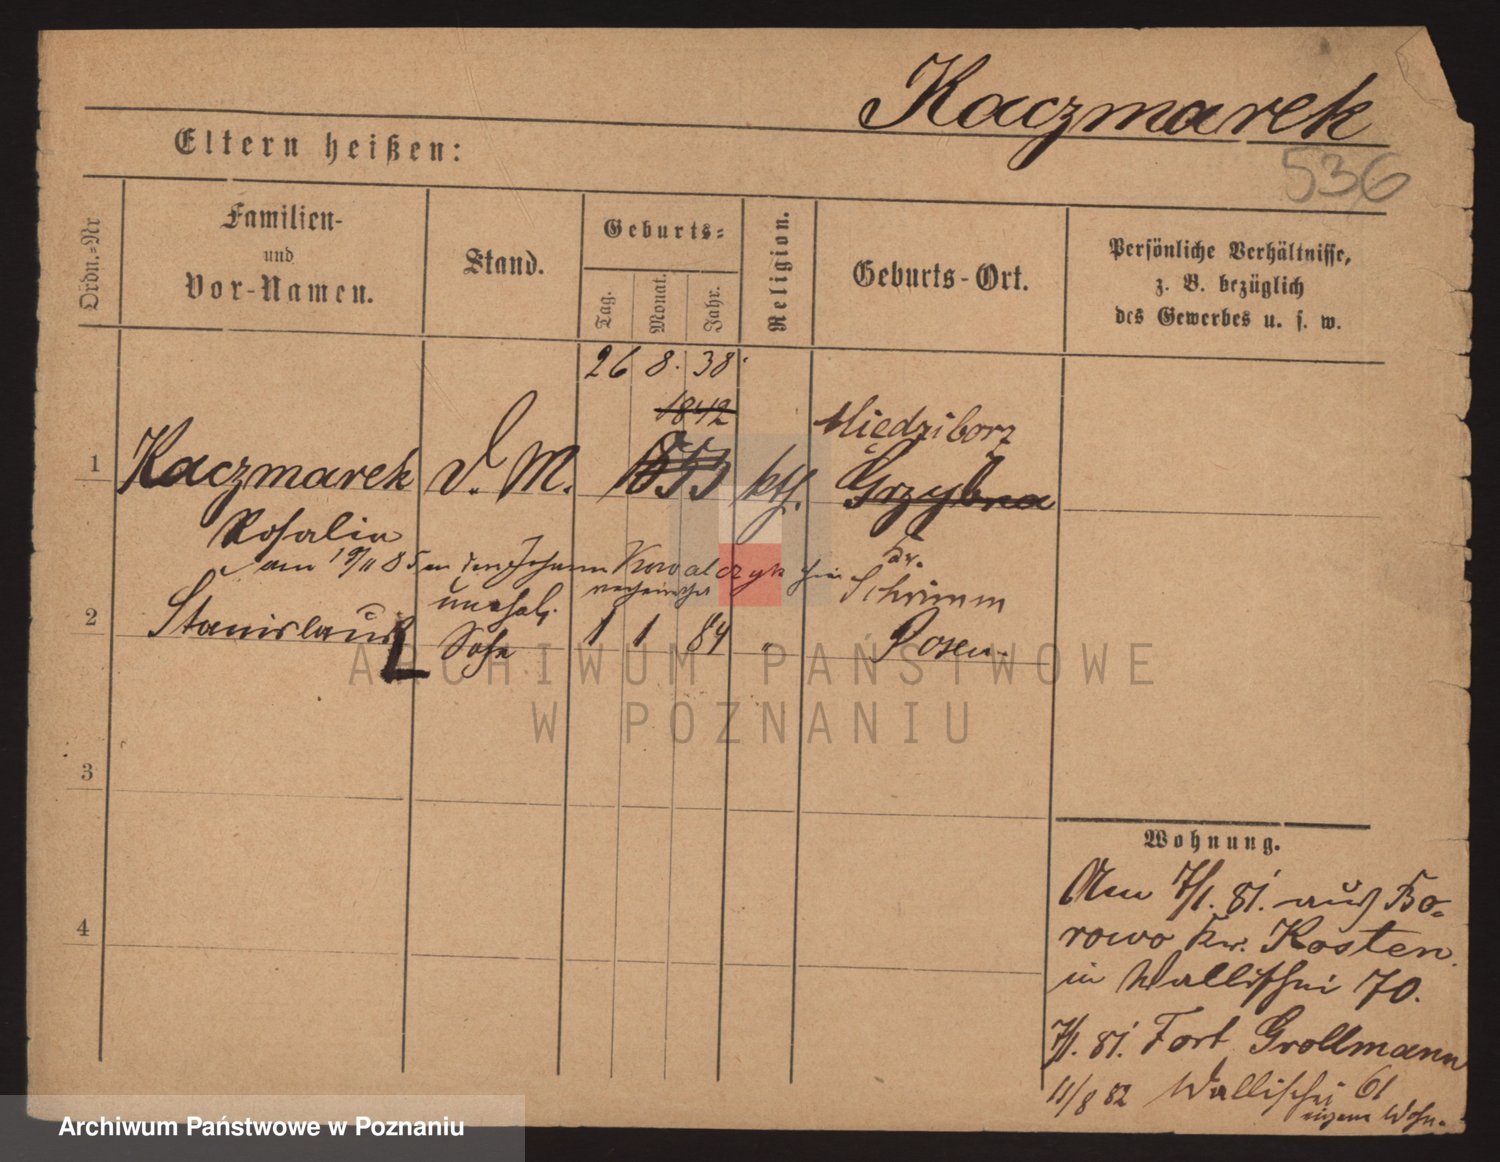 Kaczmarek
536
Eltern heißen:
Ordn.-Nr
Familien-
und
Vor-Namen.
Stand.
Geburts-
Tag.
Monat.
Jahr.
Religion.
Geburts-Ort.
Persönliche Verhältnisse,
z. B. bezüglich
des Gewerbes u. s. w.
26 8. 38.
1842
1853
1 Kaczmarek D. M. kth.
Miedziborz
Grzybna
Rosalia
am 19/11 85 an den Johann Kowalczyk hier
verheirathet
Kr.
Schrimm
unehel.
2 Stanislaus Sohn 1 1 84 " Posen.
3
4
Wohnung.
Am 7/1. 81. aus Bo-
rowo Kr. Kosten.
in Wallischei 70.
7/1. 81. Fort Grollmann
11/8 82 Wallischei 61
eigene Wohn.
ARCHIWUM PAŃSTWOWE
W POZNANIU
Archiwum Państwowe w Poznaniu